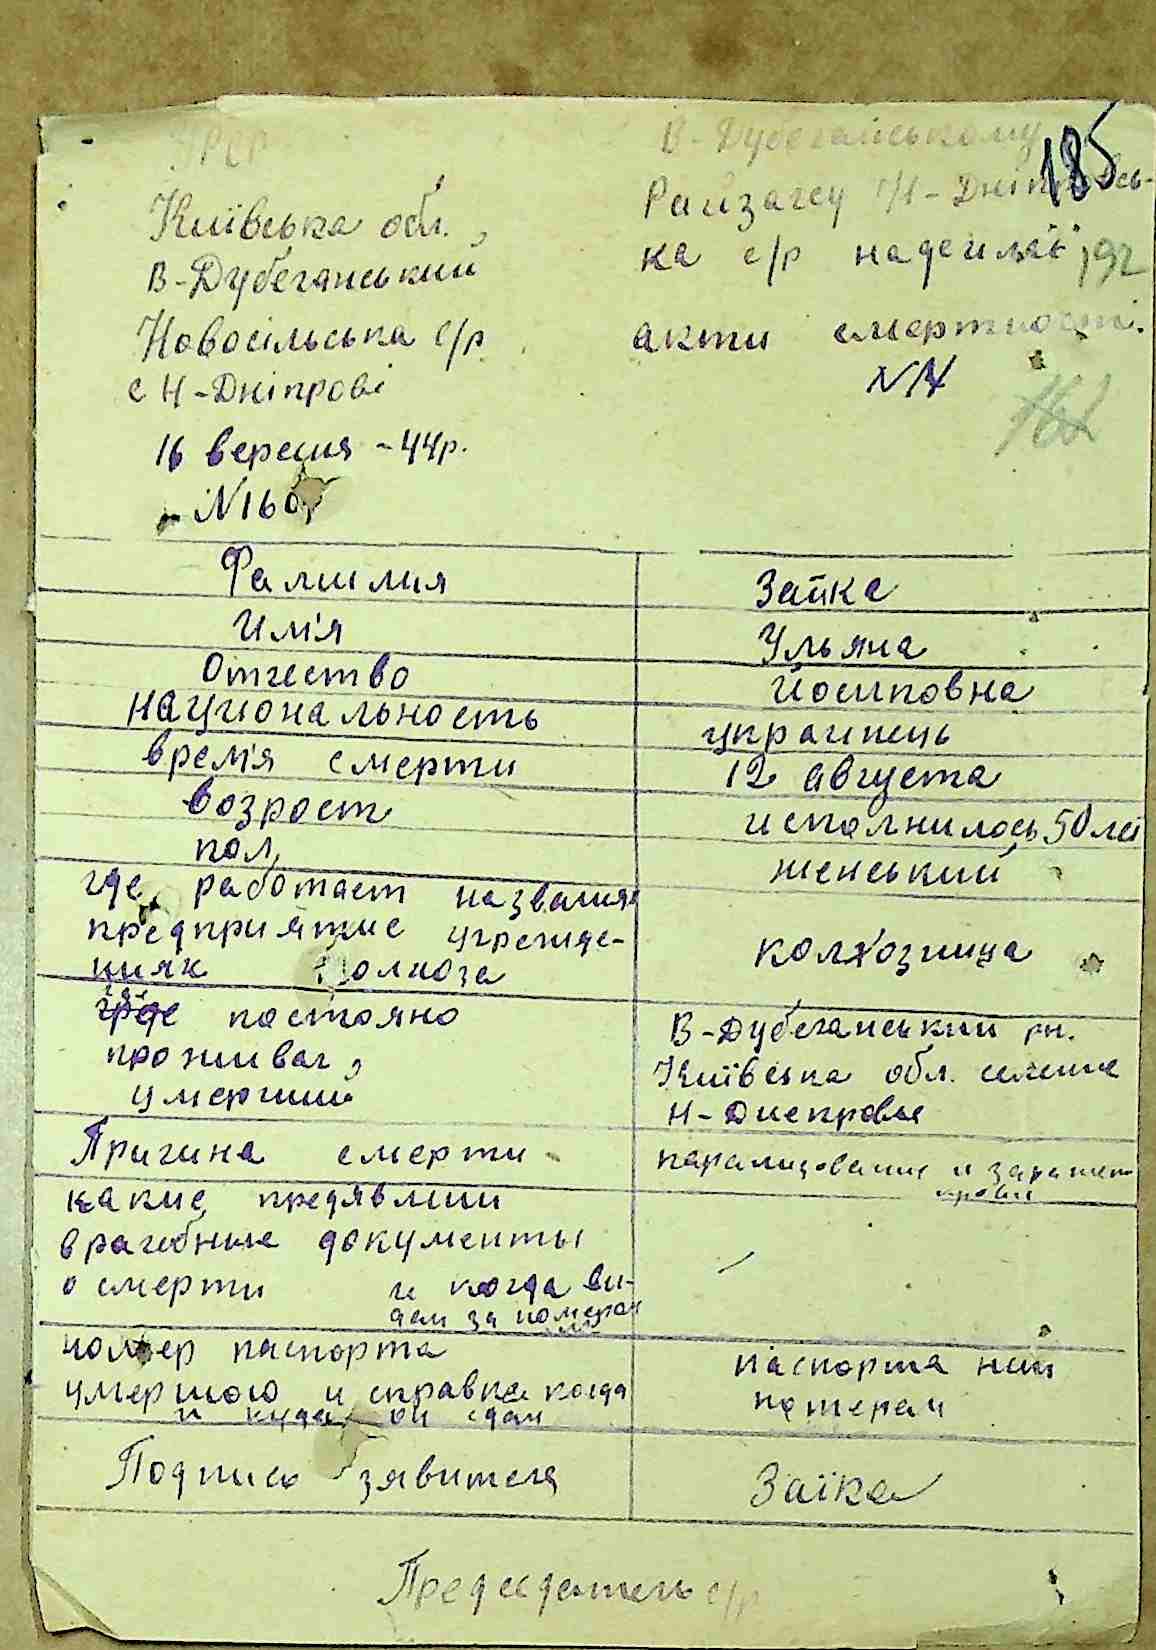 УРСР
Київська обл.,
В-Дубечанський
Новосільська с/р.
с Н-Дніпрові
16 вересня - 44р.
N160
В-Дубечанському
185
Райзагсу Н-Дніпровсь-
ка с/р надсилає
акти смертності.
N14
Фамилия
Заика
Имя
Ульяна
Отчество
Йосиповна
национальность
українець
время смерти
12 августа
возрост
исполнилось 50 лет
пол
женський
где работает названия
предприятие учрежде-
нияк колхоза
колхозница
где постояно
проживал,
умерший
В-Дубечанський рн.
Київська обл. селение
Н-Днепровье
Причина смерти
парализование и заражен
крови
какие предявлии
врачебные документы
о смерти и когда ви-
дан за номером
—
номер паспорта
умершого и справка когда
и куда он сдан
паспорта ний
потерян
Подпись зявителя
Заїка
Председатель с/р